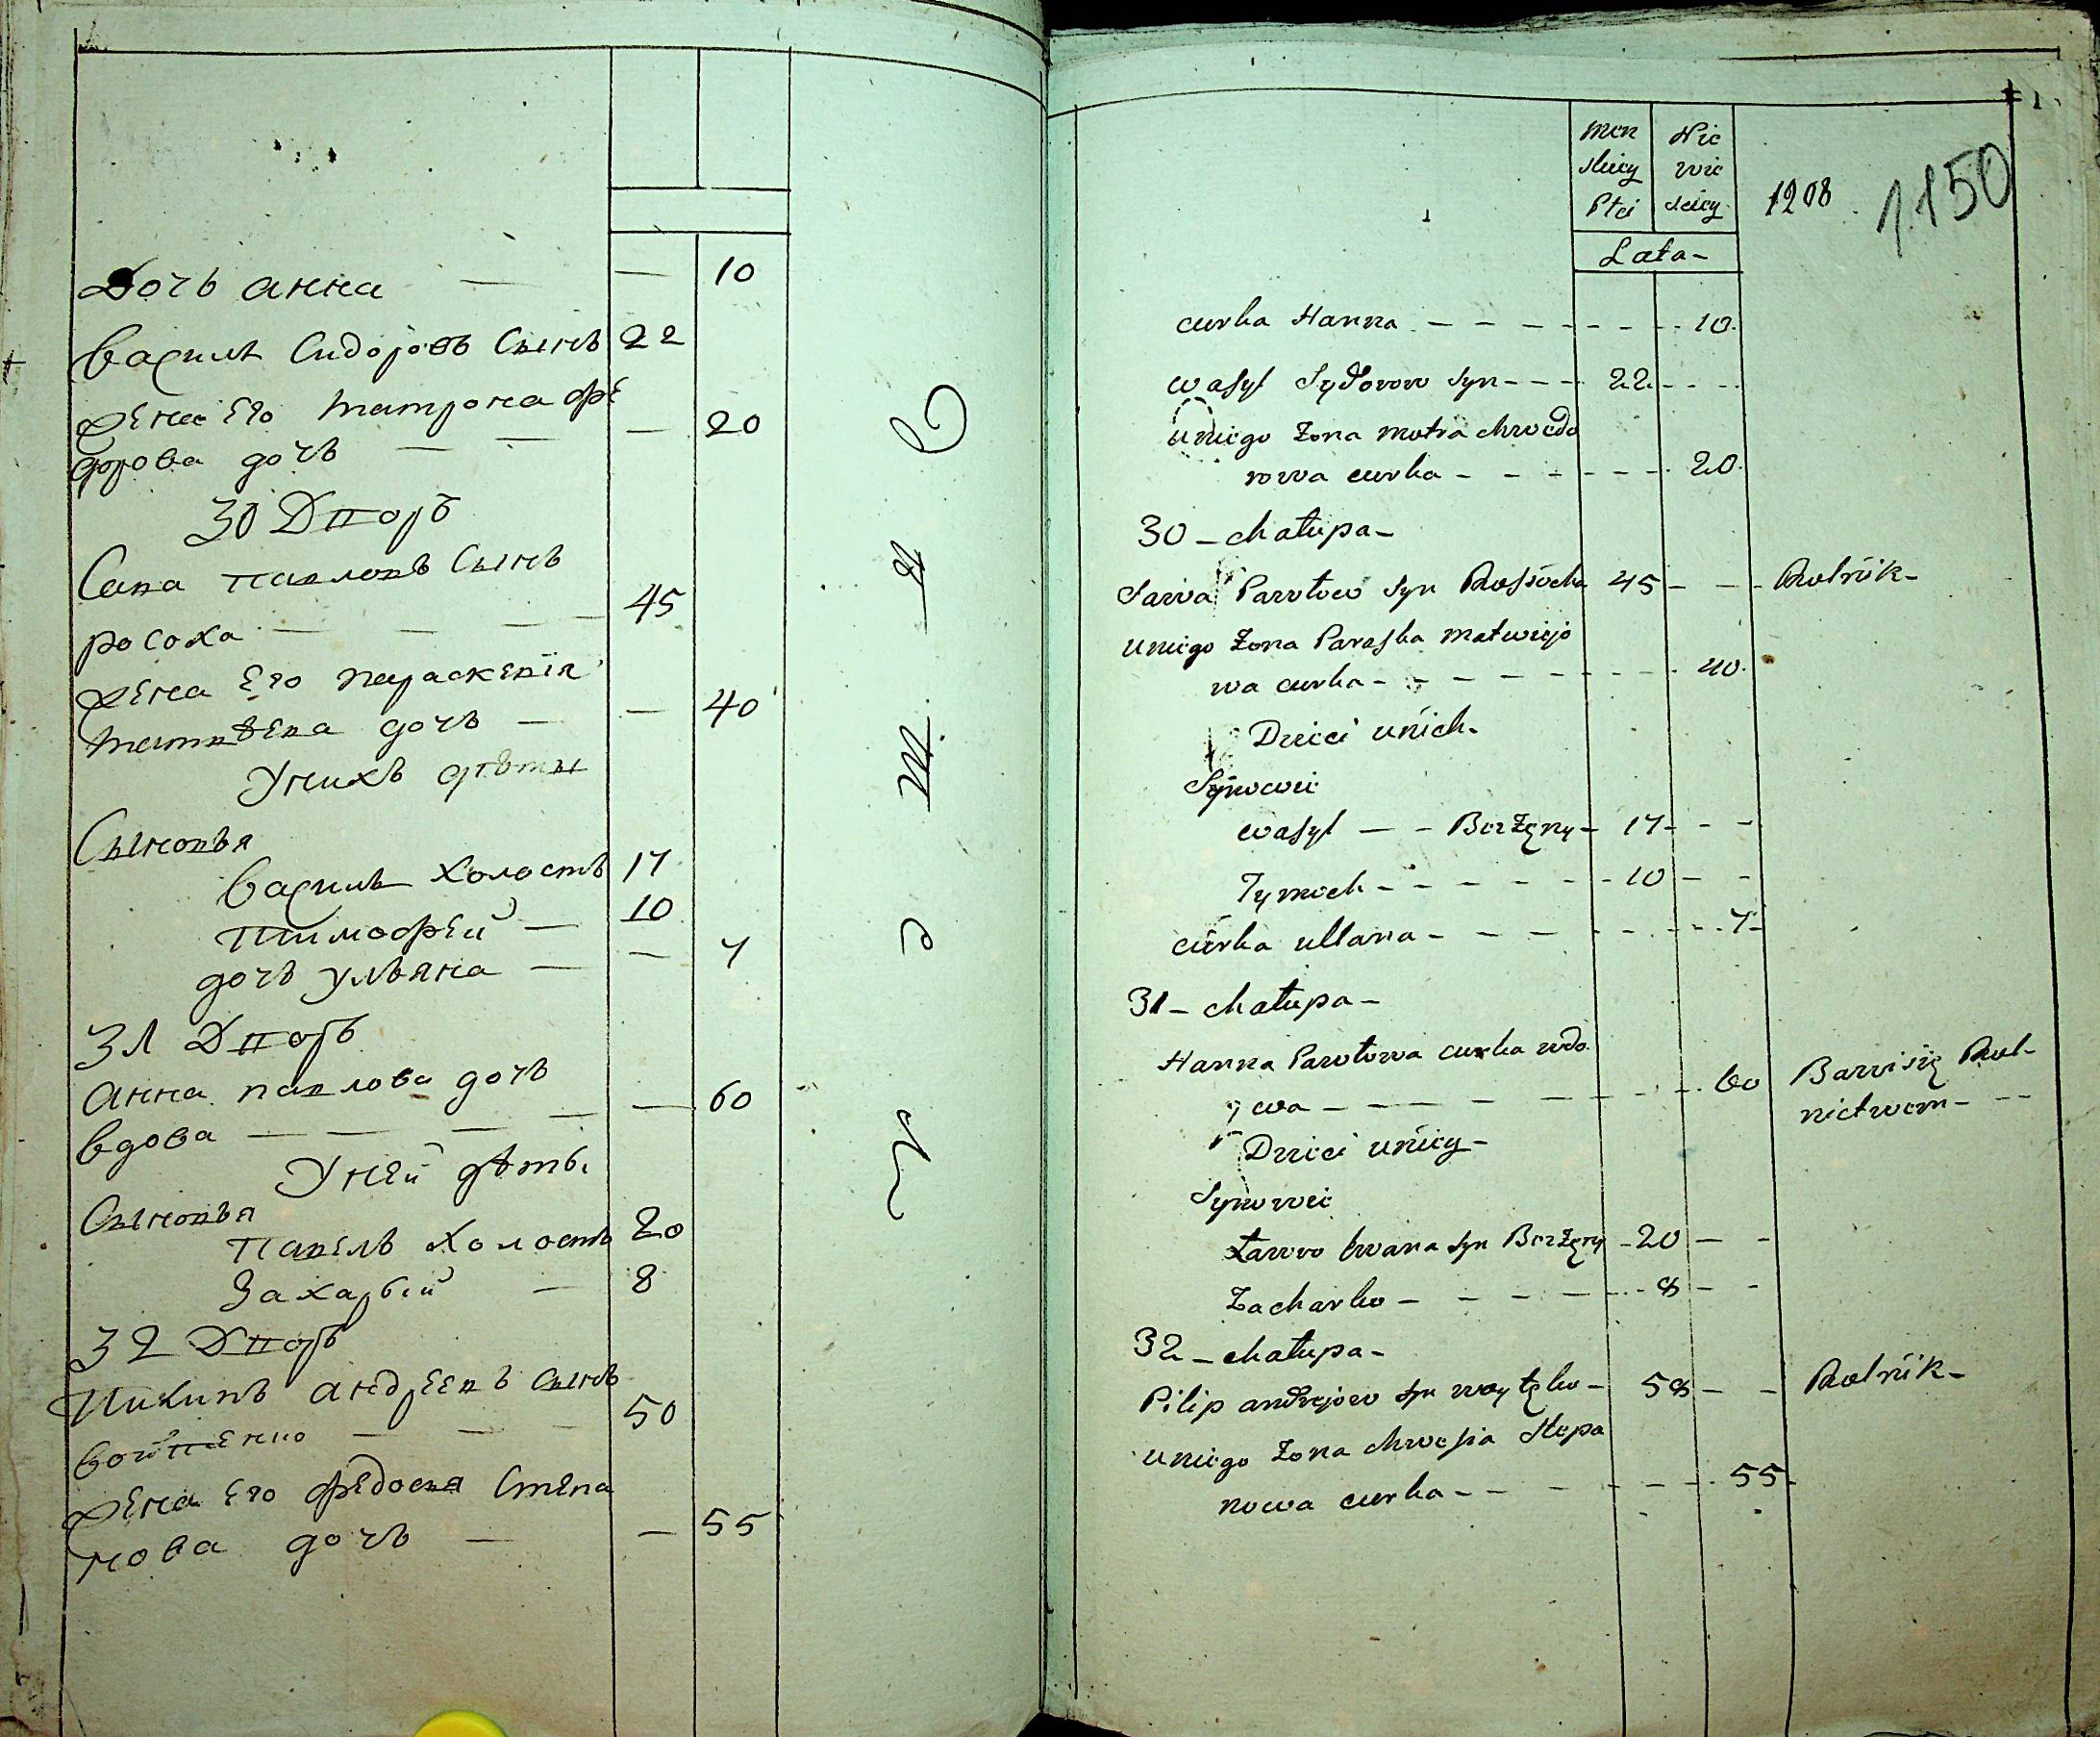 Дочь анна — — 10
Василь Сидоровъ Сынъ 22
жена Его матрона фе
дорова дочь — — 20
30 Дворъ
Сава павловъ Сынъ
росоха — 45
жена Его параскевія
матвѣева дочь — — 40
Унихъ дѣти
Сыновья
Василь холостъ 17
тимофей — 10
дочь ульяна — — 7
31 Дворъ
анна павлова дочь
вдова — — — 60
Уней дѣти
Сыновья
павелъ холостъ 20
Захарьей — 8
32 Дворъ
пилипъ андреевъ сынъ
войтенко — 50
жена Его федосья Степа
нова дочь — — 55
Men
skiey
Płci
Nie
wie
sciey
1208
1150
Lata -
curka Hanna - - - 10
Wasyl Sydorow syn - - - 22 - -
uniego Zona Motra Chwedo
rowa curka - - - 20
30 - chałupa -
Sawa Pawłow syn Rossocha 45 - - Rolnik -
uniego Zona Paraska Matwiejo
wa curka - - - 40
Dzieci unich -
Synowie
Wasyl - - BezZęny - 17 - -
Tymoch - - - 10 - -
curka ullana - - - 7
31 - chałupa -
Hanna Pawłowa curka wdo
wa - - - 60 Bawisię Rol-
nictwem - -
Dzieci uniey -
Synowie
Pawo Iwana syn BezZęny - 20 - -
Zacharko - - - 8 - -
32 - chałupa -
Pilip andrejow syn woytęko - 58 - - Rolnik -
uniego Zona Chwesia Stepa
nowa curka - - - 55